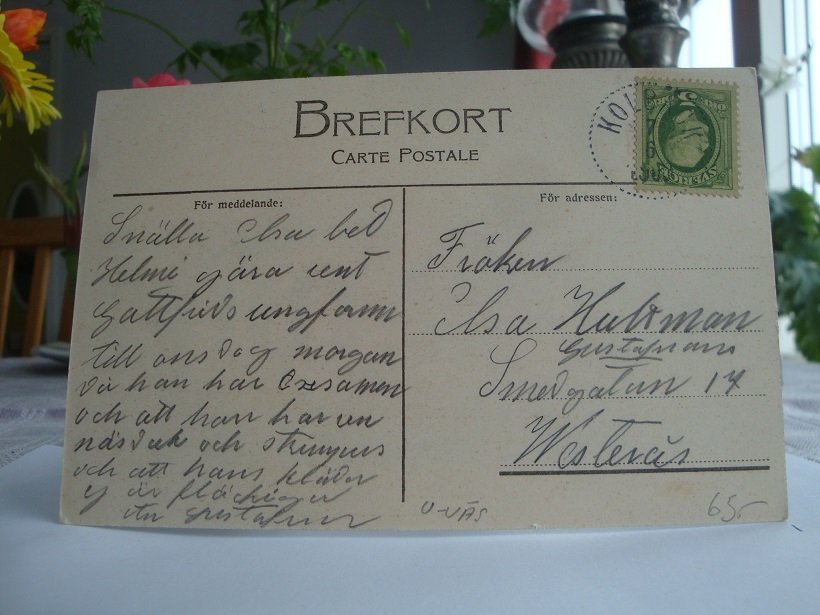 BREFKORT
CARTE POSTALE
För meddelande:
Snälla Elsa bed
Helmi gjära rent
Gottfrids ungform
till onsdag morgan
då han har Exsamen
och att han har en
näsduk och
och att hans kläder
ej är fläckiga
För adressen:
Fröken
Elsa Hultman
Gustafsons
Smedgatan 14
Westerås
U-VÄS
65:-
KOL
5